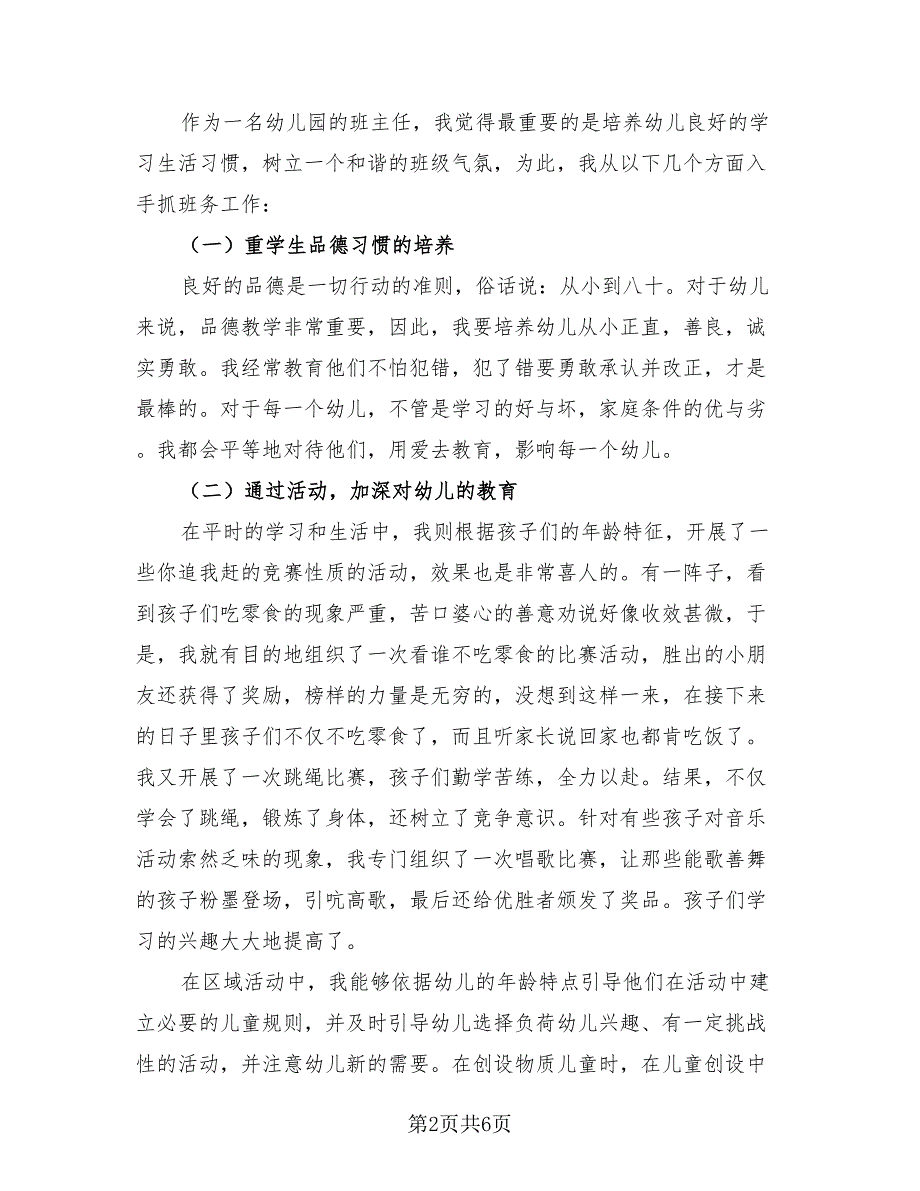 作为一名幼儿园的班主任，我觉得最重要的是培养幼儿良好的学
习生活习惯，树立一个和谐的班级气氛，为此，我从以下几个方面入
手抓班务工作：
（一）重学生品德习惯的培养
良好的品德是一切行动的准则，俗话说：从小到八十。对于幼儿
来说，品德教学非常重要，因此，我要培养幼儿从小正直，善良，诚
实勇敢。我经常教育他们不怕犯错，犯了错要勇敢承认并改正，才是
最棒的。对于每一个幼儿，不管是学习的好与坏，家庭条件的优与劣
。我都会平等地对待他们，用爱去教育，影响每一个幼儿。
（二）通过活动，加深对幼儿的教育
在平时的学习和生活中，我则根据孩子们的年龄特征，开展了一
些你追我赶的竞赛性质的活动，效果也是非常喜人的。有一阵子，看
到孩子们吃零食的现象严重，苦口婆心的善意劝说好像收效甚微，于
是，我就有目的地组织了一次看谁不吃零食的比赛活动，胜出的小朋
友还获得了奖励，榜样的力量是无穷的，没想到这样一来，在接下来
的日子里孩子们不仅不吃零食了，而且听家长说回家也都肯吃饭了。
我又开展了一次跳绳比赛，孩子们勤学苦练，全力以赴。结果，不仅
学会了跳绳，锻炼了身体，还树立了竞争意识。针对有些孩子对音乐
活动索然乏味的现象，我专门组织了一次唱歌比赛，让那些能歌善舞
的孩子粉墨登场，引吭高歌，最后还给优胜者颁发了奖品。孩子们学
习的兴趣大大地提高了。
在区域活动中，我能够依据幼儿的年龄特点引导他们在活动中建
立必要的儿童规则，并及时引导幼儿选择负荷幼儿兴趣、有一定挑战
性的活动，并注意幼儿新的需要。在创设物质儿童时，在儿童创设中
第2页共6页